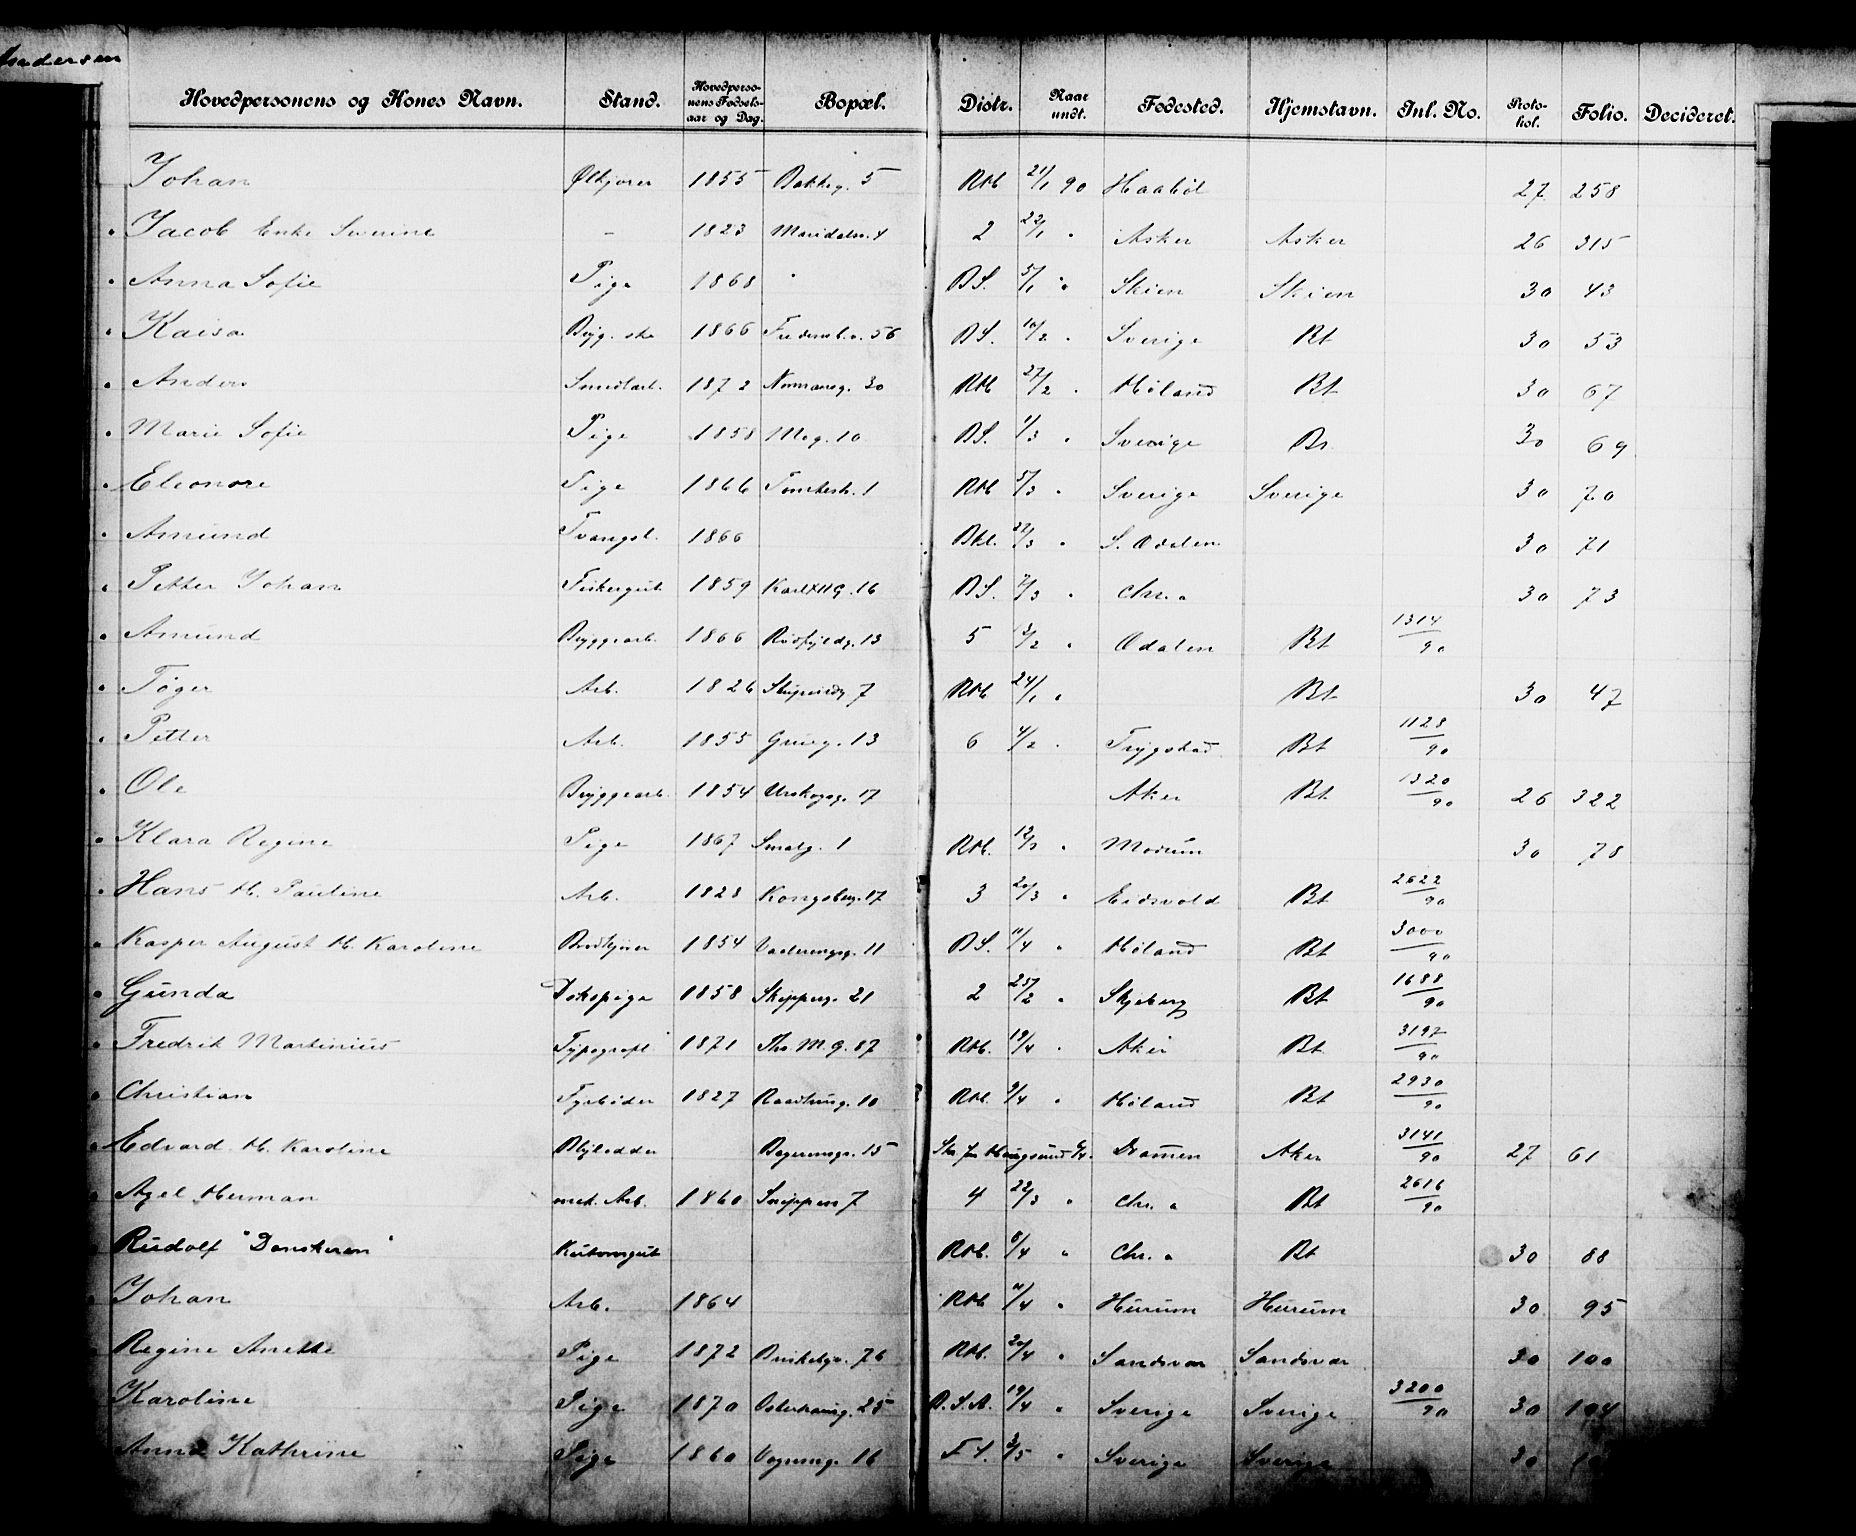 Andersen
Hovedpersonens og Kones Navn. Stand. Hovedperso-nens Fødsels-aar og Dag. Bopæl. Distr. Naar undt. Fødested. Hjemstavn. Inl. No. Proto-kol. Folio. Decideret.
Johan Ølkjører 1855 Bakkeg. 5 RM 21/1 90 Haabøl 27 258
" Jacob Enke Severine - 1823 Maridalsv. 4 2 22/1 " Asker Asker 26 315
" Anna Sofie Pige 1868 " BS. 5/1 " Skien Skien 30 43
" Kaisa Bryg. 1866 Fredensb.v. 56 BS. 10/2 " Sverige Bt 30 53
" Anders Smedarb. 1872 Normannsg. 30 RM 27/2 " Høland Bt 30 67
" Marie Sofie Pige 1858 Møg. 10 BS. 1/3 " Sverige 30 69
" Eleonore Pige 1866 Tomtestr. 1 RM 5/3 " Sverige Sverige 30 70
" Amund Tvangsl. 1866 Bkl. 22/3 " S. Odalen 30 71
" Petter Johan Fiskergut 1859 Karl XII G. 16 BS. 7/3 " Chr. a 30 73
" Amund Bryggearb. 1866 Rødfyldg. 13 5 13/2 " Odalen Bt 1314/90
" Tøger Arb. 1826 7 RM 24/1 " Bt 30 47
" Petter Arb. 1855 Grueg. 13 6 4/2 " Trygstad Bt 1128/90
" Ole Bryggearb. 1854 Urskogsg. 17 Aker Bt 1320/90 26 322
" Klara Regine Pige 1867 Smalg. 1 RM. 12/3 " Modum 30 78
" Hans M. Pauline Arb. 1828 Kongsberg. 17 3 20/3 " Eidsvold Bt 2622/90
" Kasper August M. Karoline Brødkjører 1854 Vaalerengsg. 11 BS. 11/4 " Høland Bt 3000/90
" Gunda Dskspige 1858 Skipperg. 21 2 25/2 " Skjeberg Bt 1688/90
" Fredrik Martinius Typograf 1871 Ths. M. g. 87 RM. 19/4 " Aker Bt 3197/90
" Christian Fyrbøder 1827 10 RM. 9/4 " Høland Bt 2930/90
" Edvard M. Karoline Bøgerensgr. 15 Haugsund Dramen Aker 3141/90 27 61
" Axel Herman mek. Arb. 1860 Snippen 7 4 22/3 " Chr. a Bt 2616/90
" Rudolf "Danskeren" RM. 8/4 " Chr. a Bt 30 88
" Johan Arb. 1864 RM 11/4 " Hurum Hurum 30 95
Regine Anette Pige 1872 76 RM. 20/4 " Sandsvær Sandsvær 30 100
Karoline Pige 1870 Osterhausg. 25 B.S.A. 19/4 " Sverige Sverige 3200/90 30 104
Anna Kathrine Pige 1860 Vognmg. 16 F S. 3/5 " Sverige Sverige 30